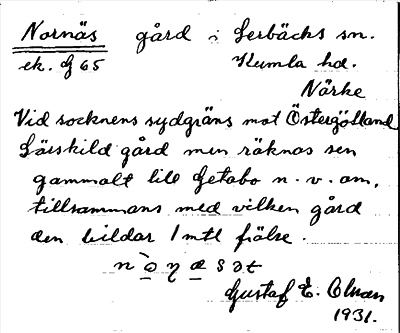 Nornäs gård i Lerbäcks sn.
ek. G 65 Kumla hd.
Närke
Vid socknens sydgräns mot Östergötland
Särskild gård men räknas sen
gammalt till Getabo n. v. om,
tillsammans med vilken gård
den bildar 1 mtl frälse.
Gustaf E.
1931.